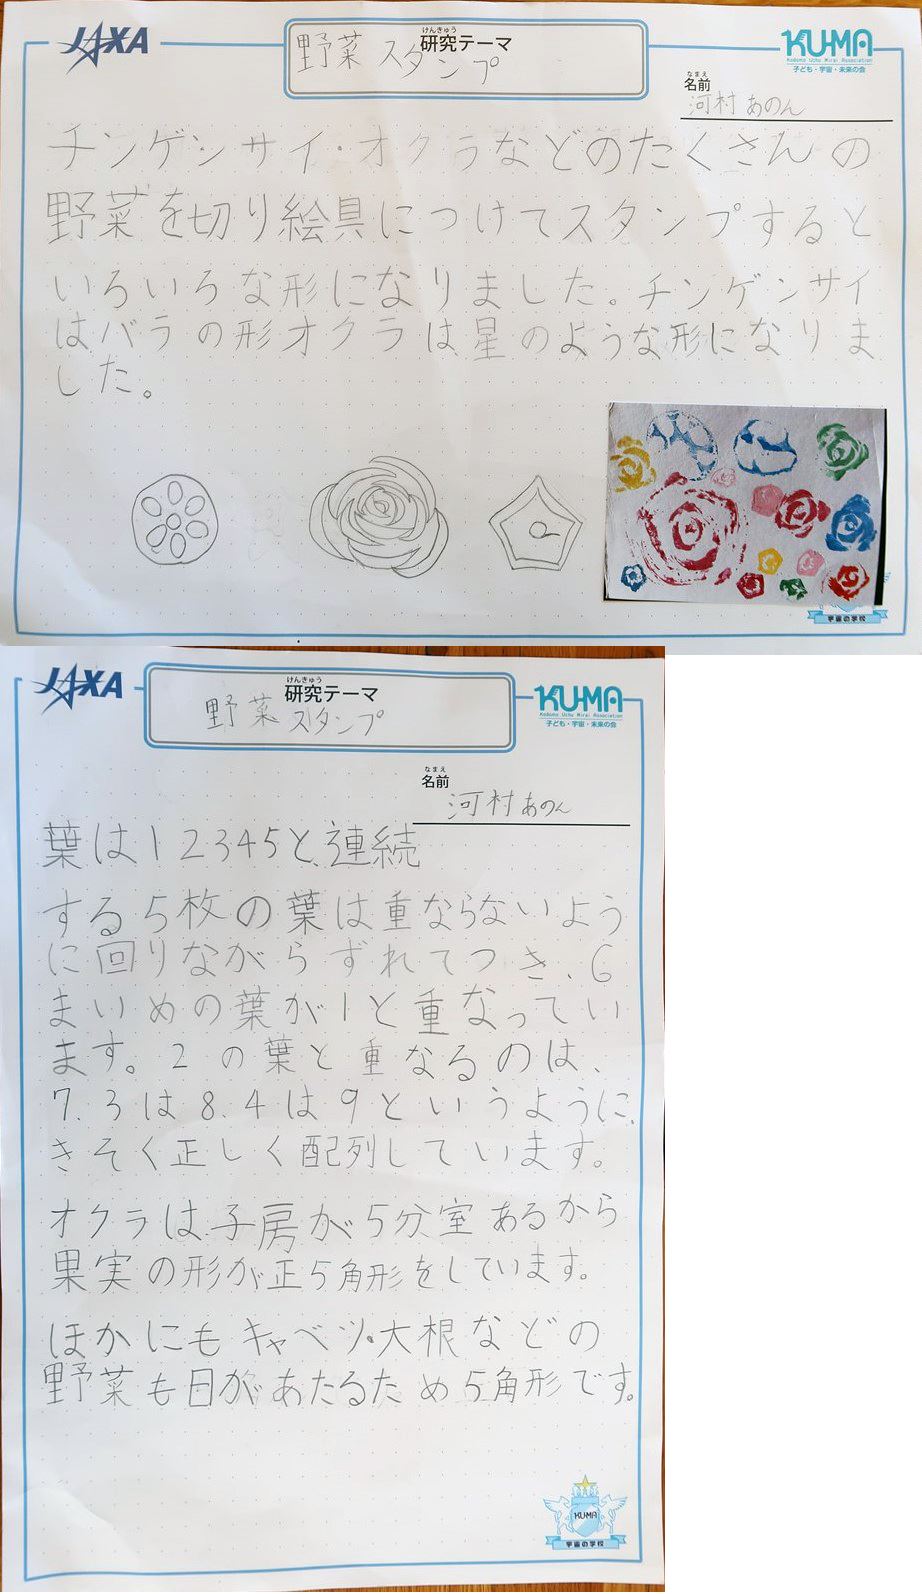 JAXA
けんきゅう
研究テーマ
野菜 スタンプ
KU-MA
Kodomo Uchu Mirai Association
子ども・宇宙・未来の会
なまえ
名前
河村 あのん
チンゲンサイ・オクラなどのたくさんの
野菜を切り絵具につけてスタンプすると
いろいろな形になりました。チンゲンサイ
はバラの形オクラは星のような形になりま
した。
宇宙の学校
JAXA
けんきゅう
研究テーマ
野菜スタンプ
KU-MA
Kodomo Uchu Mirai Association
子ども・宇宙・未来の会
なまえ
名前
河村 あのん
葉は12345と連続
する5枚の葉は重ならないよう
に回りながらずれてつき、6
まいめの葉が1と重なってい
ます。2の葉と重なるのは、
7.3は8.4は9というように、
きそく正しく配列しています。
オクラは子房が5分室あるから
果実の形が正5角形をしています。
ほかにもキャベツ・大根などの
野菜も日があたるため5角形です。
KU-MA
宇宙の学校